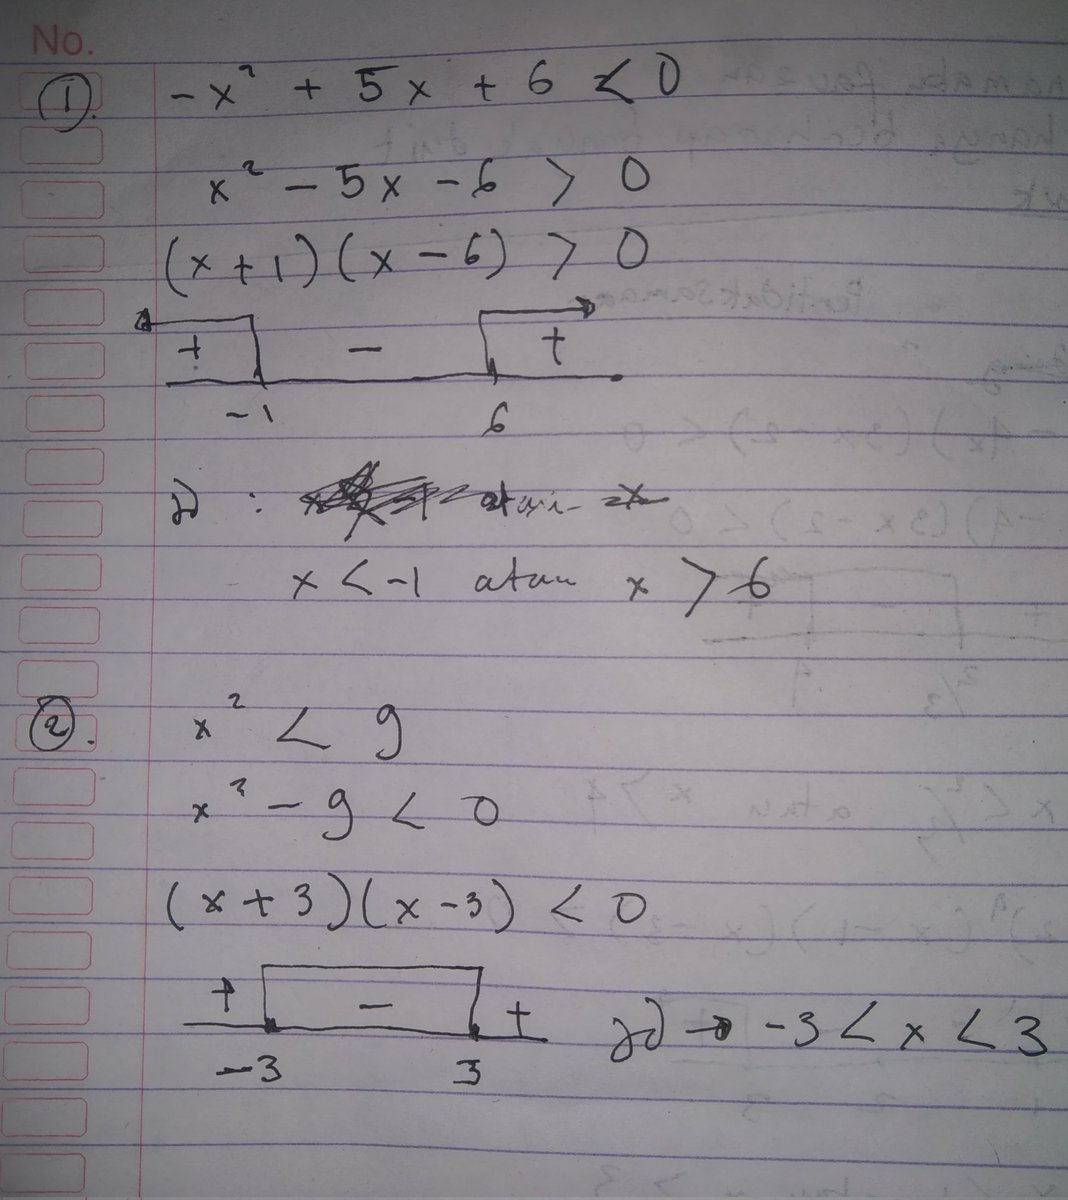 No.
① -x² + 5x + 6 < 0
x² - 5x - 6 > 0
(x + 1)(x - 6) > 0
+ - +
-1 6
:
x < -1 atau x > 6
② x² < 9
x² - 9 < 0
(x + 3)(x - 3) < 0
+ - +
-3 3
→ -3 < x < 3